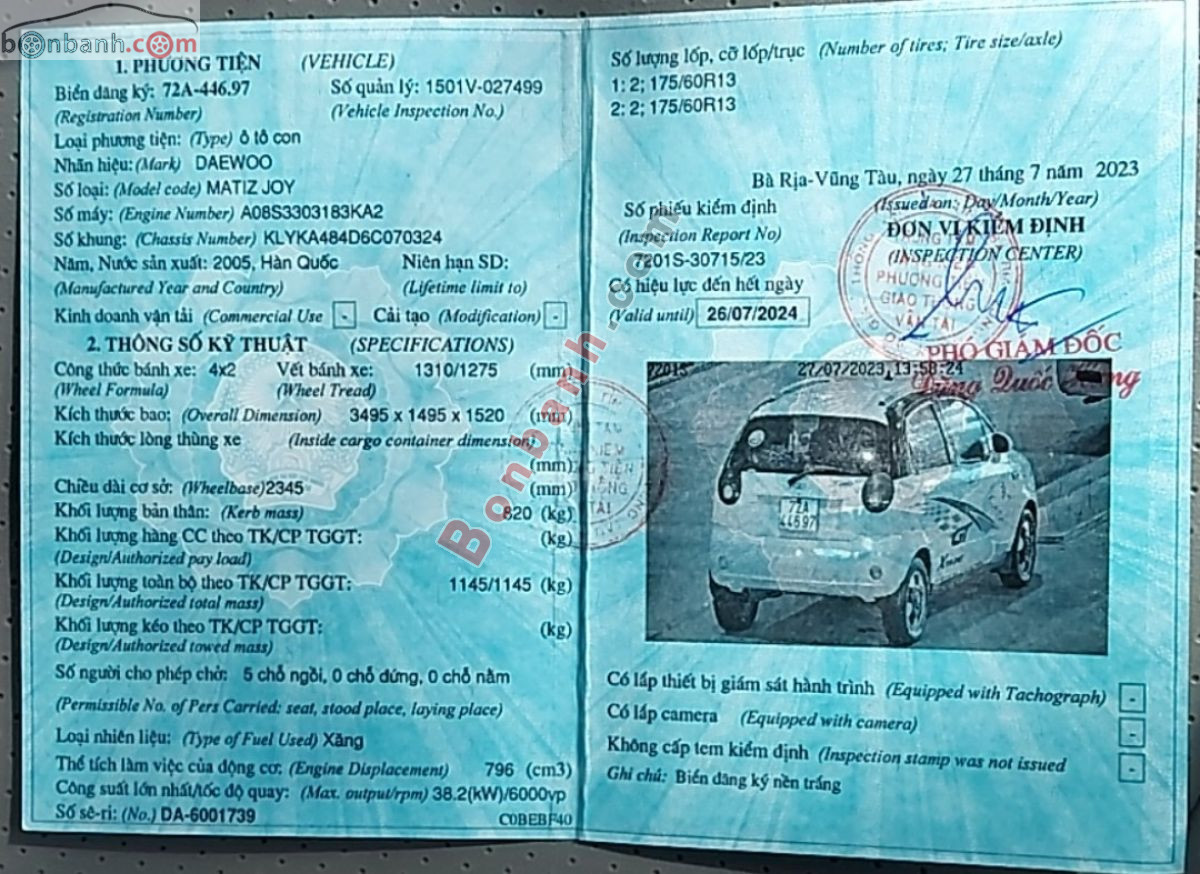 bonbanh.com
1. PHƯƠNG TIỆN (VEHICLE)
Biển đăng ký: 72A-446.97 Số quản lý: 1501V-027499
(Registration Number) (Vehicle Inspection No.)
Loại phương tiện: (Type) ô tô con
Nhãn hiệu: (Mark) DAEWOO
Số loại: (Model code) MATIZ JOY
Số máy: (Engine Number) A08S3303183KA2
Số khung: (Chassis Number) KLYKA484D6C070324
Năm, Nước sản xuất: 2005, Hàn Quốc Niên hạn SD:
(Manufactured Year and Country) (Lifetime limit to)
Kinh doanh vận tải (Commercial Use - Cải tạo (Modification) -
2. THÔNG SỐ KỸ THUẬT (SPECIFICATIONS)
Công thức bánh xe: 4x2 Vết bánh xe: 1310/1275 (mm)
(Wheel Formula) (Wheel Tread)
Kích thước bao: (Overall Dimension) 3495 x 1495 x 1520 (mm)
Kích thước lòng thùng xe (Inside cargo container dimension)
(mm)
Chiều dài cơ sở: (Wheelbase)2345 (mm)
Khối lượng bản thân: (Kerb mass) 820 (kg)
Khối lượng hàng CC theo TK/CP TGGT: (kg)
(Design/Authorized pay load)
Khối lượng toàn bộ theo TK/CP TGGT: 1145/1145 (kg)
(Design/Authorized total mass)
Khối lượng kéo theo TK/CP TGGT: (kg)
(Design/Authorized towed mass)
Số người cho phép chở: 5 chỗ ngồi, 0 chỗ đứng, 0 chỗ nằm
(Permissible No. of Pers Carried: seat, stood place, laying place)
Loại nhiên liệu: (Type of Fuel Used) Xăng
Thể tích làm việc của động cơ: (Engine Displacement) 796 (cm3)
Công suất lớn nhất/tốc độ quay: (Max. output/rpm) 38.2(kW)/6000vp
Số sê-ri: (No.) DA-6001739 C0BEBF40
Số lượng lốp, cỡ lốp/trục (Number of tires; Tire size/axle)
1: 2; 175/60R13
2: 2; 175/60R13
Bà Rịa-Vũng Tàu, ngày 27 tháng 7 năm 2023
(Issued on: Day/Month/Year)
Số phiếu kiểm định ĐƠN VỊ KIỂM ĐỊNH
(Inspection Report No) (INSPECTION CENTER)
7201S-30715/23
Có hiệu lực đến hết ngày
(Valid until) 26/07/2024
PHƯƠNG TIỆN
GIAO THÔNG
VẬN TẢI
PHÓ GIÁM ĐỐC
Quốc
7201S 27/07/2023,13:58:24
72A
44697
Có lắp thiết bị giám sát hành trình (Equipped with Tachograph) -
Có lắp camera (Equipped with camera) -
Không cấp tem kiểm định (Inspection stamp was not issued -
Ghi chú: Biển đăng ký nền trắng
Bonbanh.com